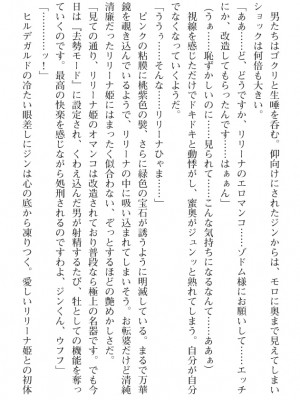 男たちはゴクリと生唾を呑む。仰向けにされたジンからは、モロに奥まで見えてしまい
ショックは何倍も大きい。
「あぁ……ど、どうですか、リリーナのエロマンコ……ゾドム様にお願いして……エッチ
にか、改造してもらったんです……はぁぁん」
（うぁ……恥ずかしいのに……見られて……こんな気持ちになるなんて……あああぁ）
視線を感じただけでドキドキと動悸がし、蜜奥がジュンッと熟れてしまう。自分が自分
でなくなっていくようだ。
「ううぅ……そんな……リリーナひゃま……」
ピンクの粘膜に桃紫色の襞、さらに緑色の宝石が誘うように明滅している。まるで万華
鏡を覗き込んでいるようで、リリーナの中に吸い込まれてしまいそう。お転婆だけど清純
清廉だったリリーナ姫にはまったく似合わない、ぞっとするほどの艶めかしさだ。
「見ての通り、リリーナ姫のオマンコは改造されており普段なら極上の名器です。でも今
日は『去勢モード』にして、くわえ込んだ男が射精するたび、牡としての機能を奪っ
ていくのです。最高の快楽を感じながら処刑されるのですわよ、ジンくん、ウフフ」
「――――ッ！」
ヒルデガルドの冷たい眼差しにジンは心の底から凍りつく。愛しいリリーナ姫との初体